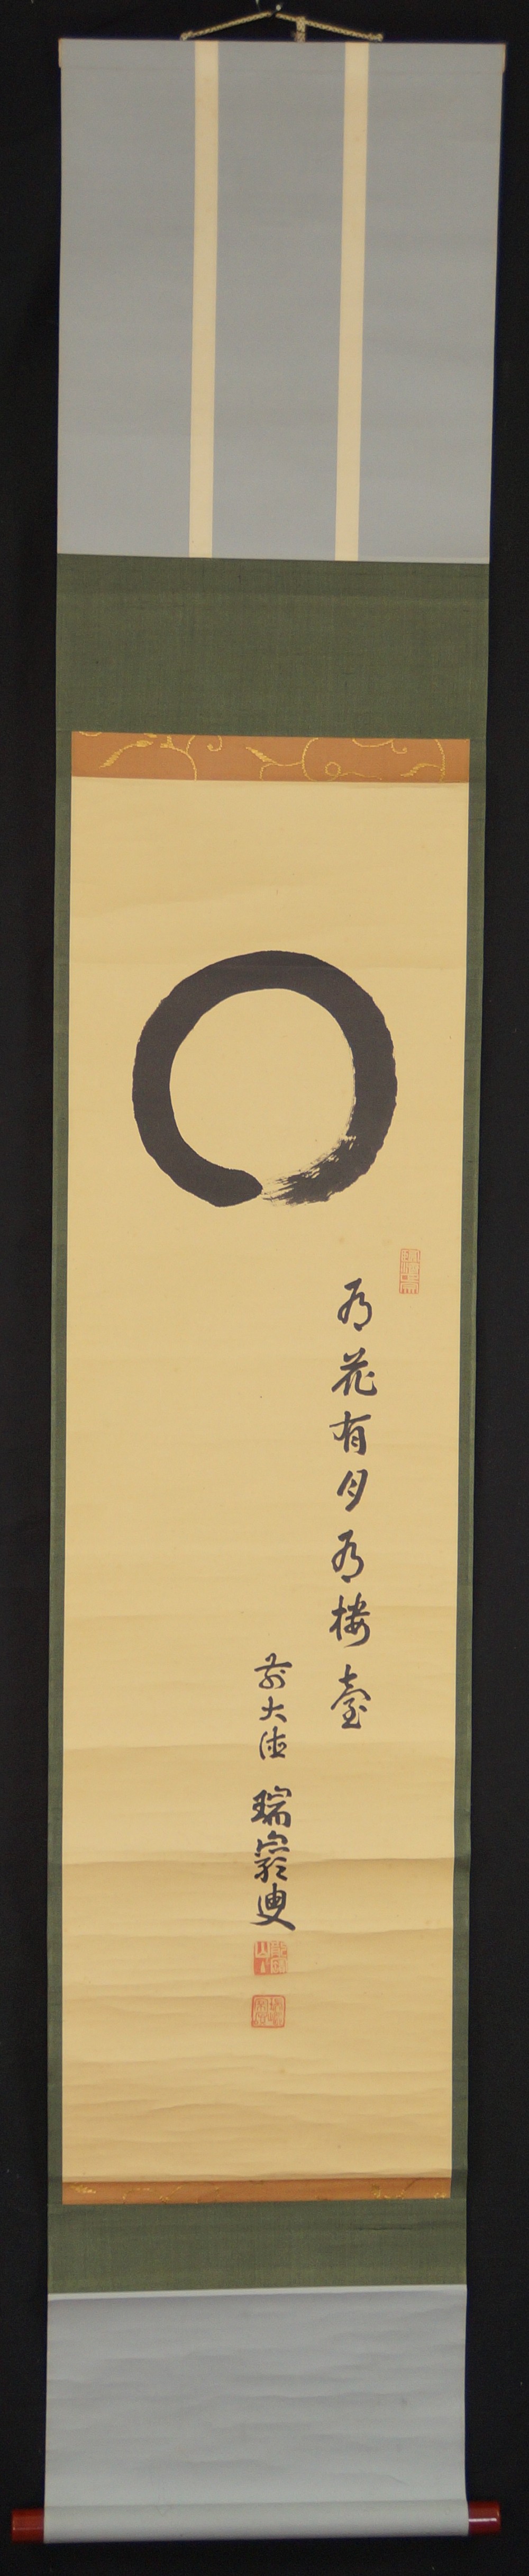 有花有月有楼臺
前大徳 瑞巖叟